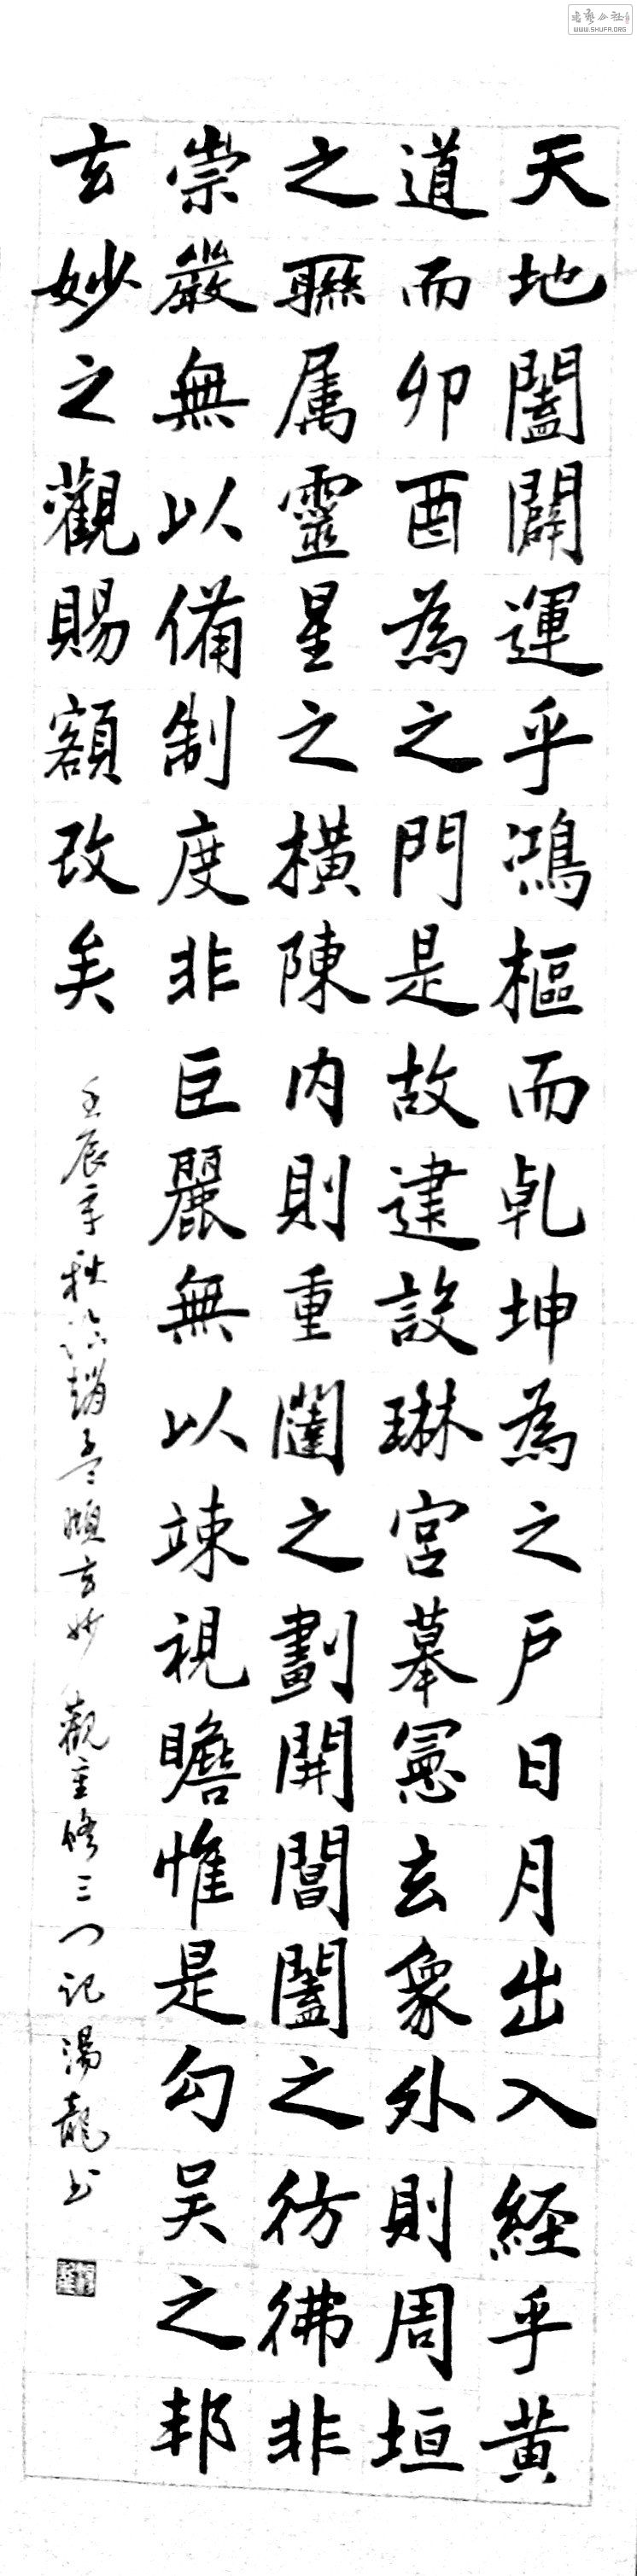 天地闔闢運乎鴻樞而乹坤為之户日月出入經乎黄
道而卯酉為之門是故建設琳宮摹憲玄象外則周垣
之聯属靈星之横陳内則重闥之劃開閶闔之彷彿非
崇嚴無以備制度非巨麗無以竦視瞻惟是勾吴之邦
玄妙之觀賜額改矣
壬辰年秋臨趙孟頫玄妙觀重修三门记湯龍书
WWW.SHUFA.ORG